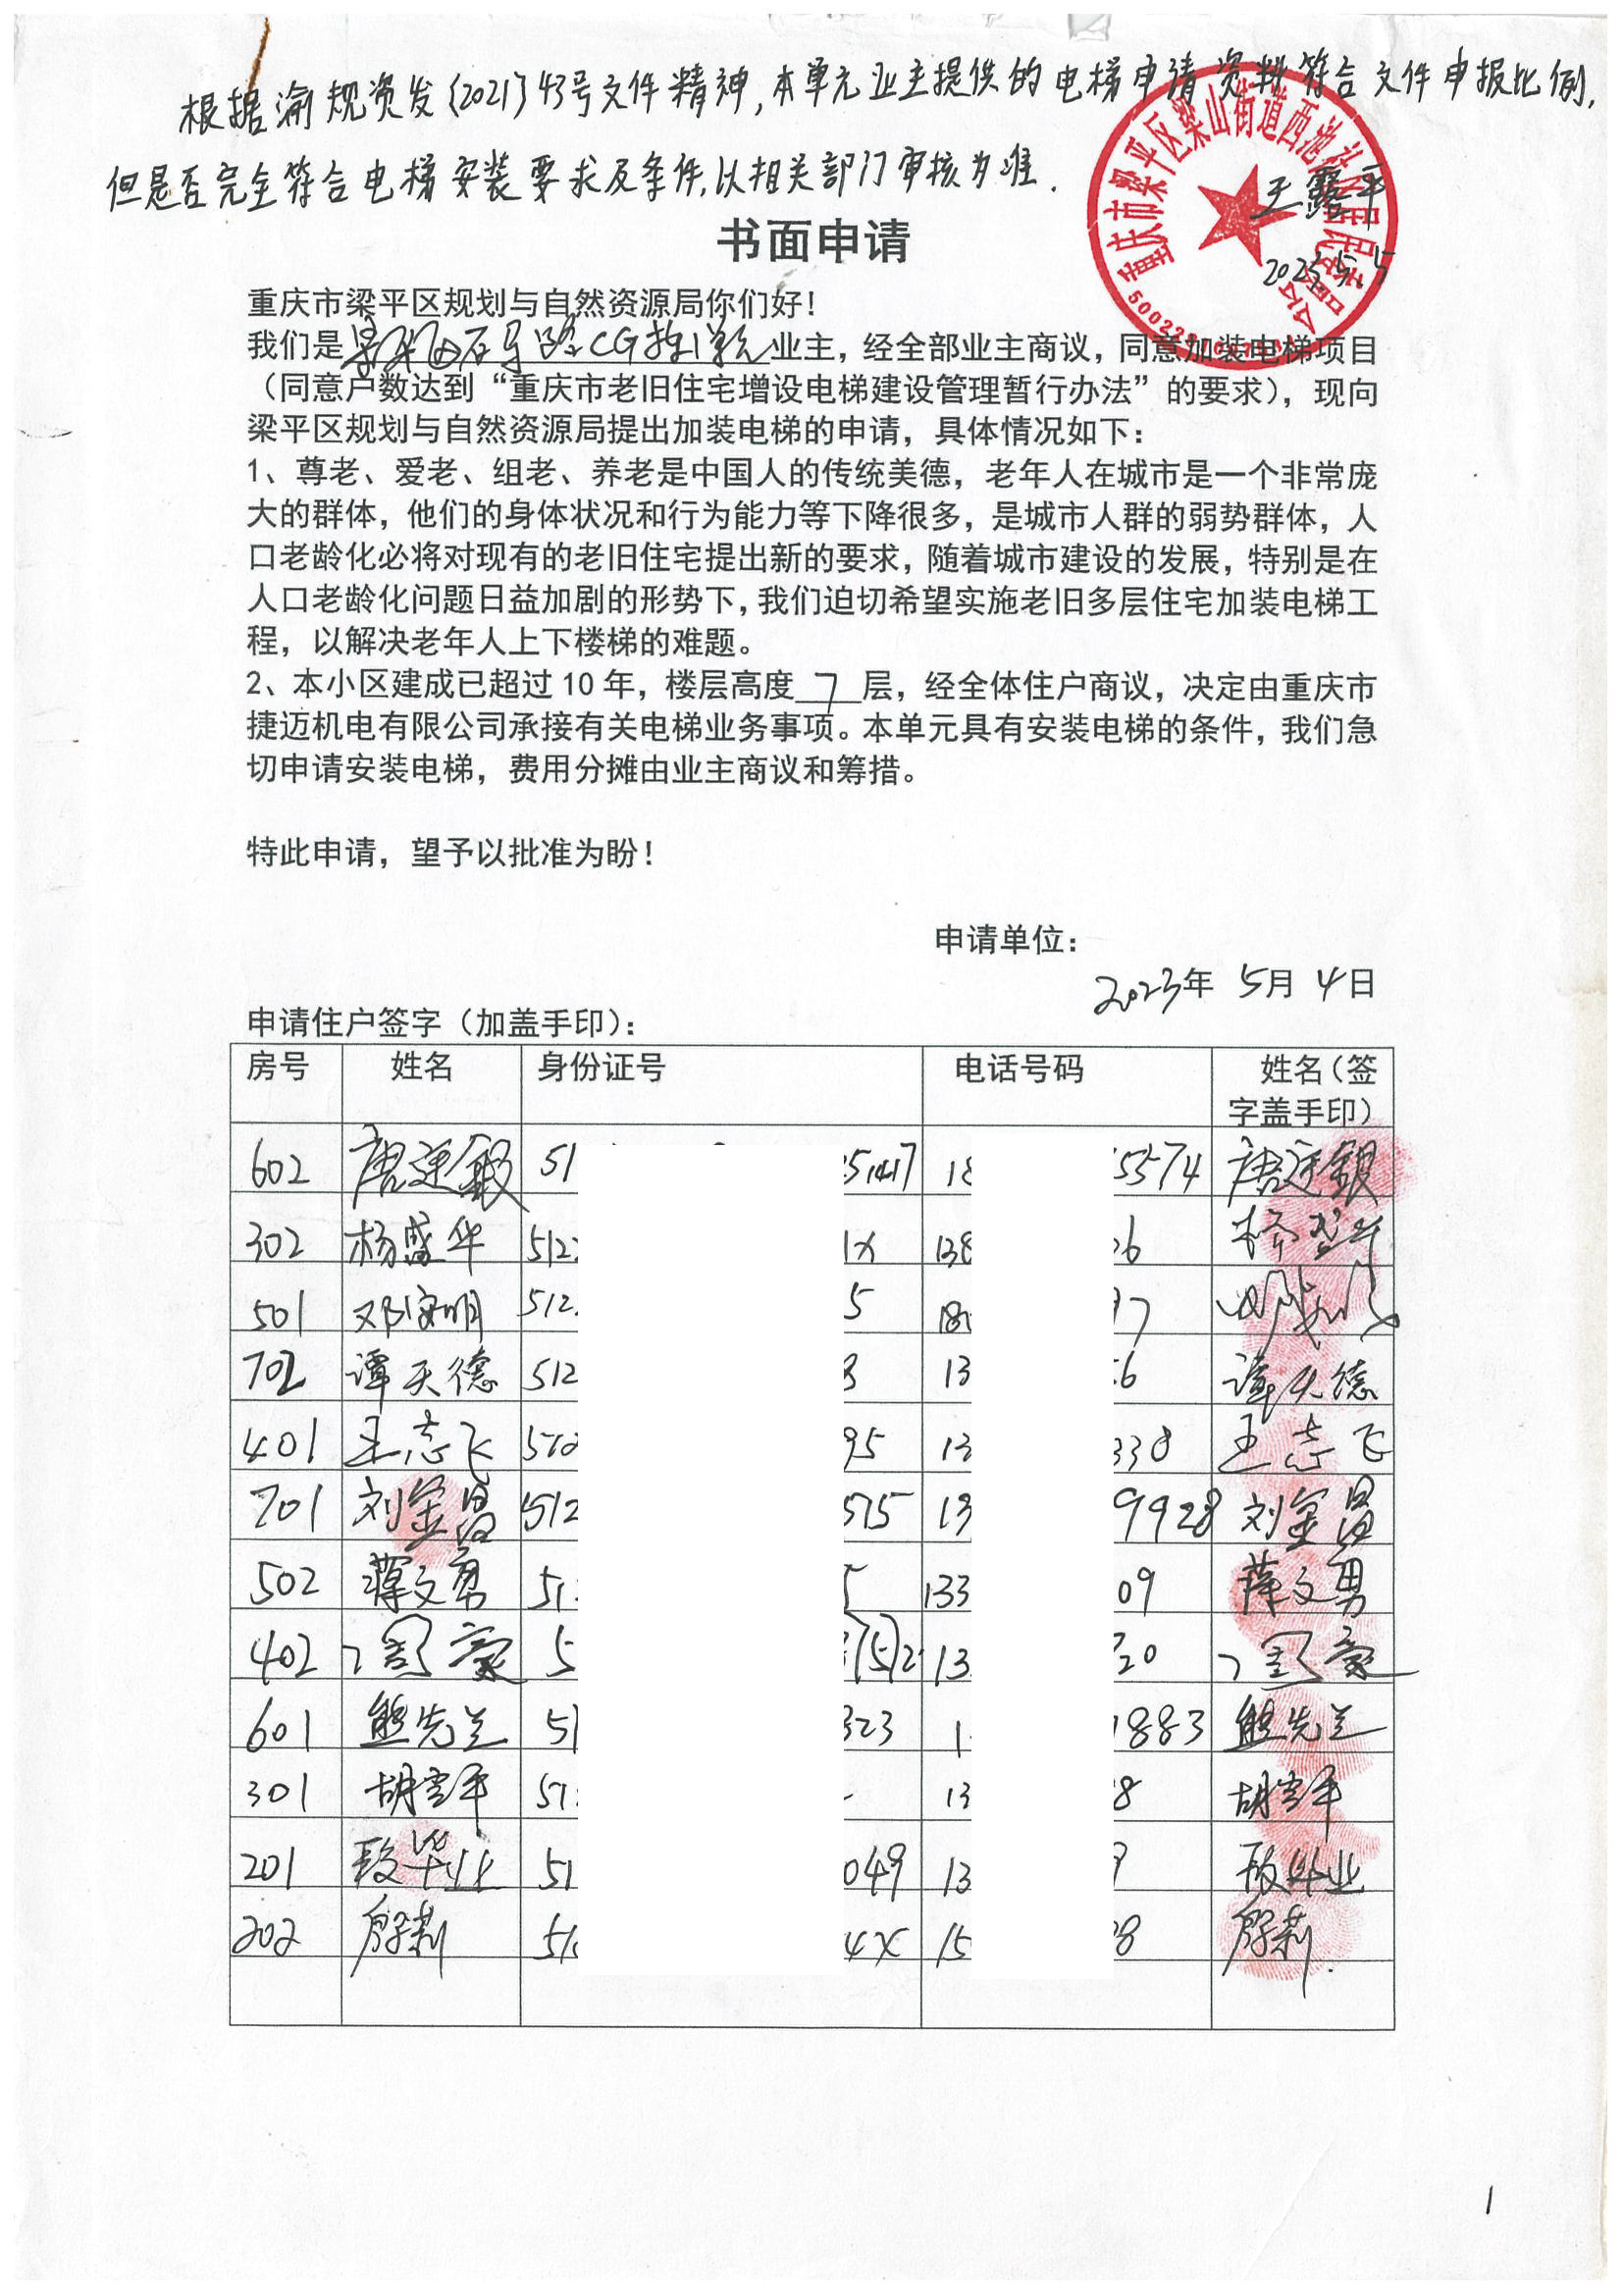 根据渝规资发〔2021〕43号文件精神,本单元业主提供的电梯申请资料符合文件申报比例,
但是否完全符合电梯安装要求及条件,以相关部门审核为准.
重庆市梁平区梁山街道西池社区居民委员会
王露平
2023.5.5
书面申请
重庆市梁平区规划与自然资源局你们好!
我们是梁平区石马路CG栋1单元业主,经全部业主商议,同意加装电梯项目
(同意户数达到“重庆市老旧住宅增设电梯建设管理暂行办法”的要求),现向
梁平区规划与自然资源局提出加装电梯的申请,具体情况如下:
1、尊老、爱老、组老、养老是中国人的传统美德,老年人在城市是一个非常庞
大的群体,他们的身体状况和行为能力等下降很多,是城市人群的弱势群体,人
口老龄化必将对现有的老旧住宅提出新的要求,随着城市建设的发展,特别是在
人口老龄化问题日益加剧的形势下,我们迫切希望实施老旧多层住宅加装电梯工
程,以解决老年人上下楼梯的难题。
2、本小区建成已超过10年,楼层高度 7 层,经全体住户商议,决定由重庆市
捷迈机电有限公司承接有关电梯业务事项。本单元具有安装电梯的条件,我们急
切申请安装电梯,费用分摊由业主商议和筹措。
特此申请,望予以批准为盼!
申请单位:
2023年 5月 4日
申请住户签字(加盖手印):
房号 姓名 身份证号 电话号码 姓名(签
字盖手印)
602 唐廷银 51 51417 18 5574 唐廷银
302 杨盛华 512 1X 138 6 杨盛华
501 邓 明 512 5 18 7
702 谭天德 512 3 13 6 谭天德
401 王志飞 512 95 13 338 王志飞
701 刘金昌 512 515 19 9928 刘金昌
502 蒋文勇 51 5 133 09 蒋文勇
402 5 13 20
601 熊先兰 51 323 1 1883 熊先兰
301 胡雪平 51 13 8 胡雪平
201 段华业 51 049 13 9 段华业
202 廖莉 51 4X 15 8 廖莉
1